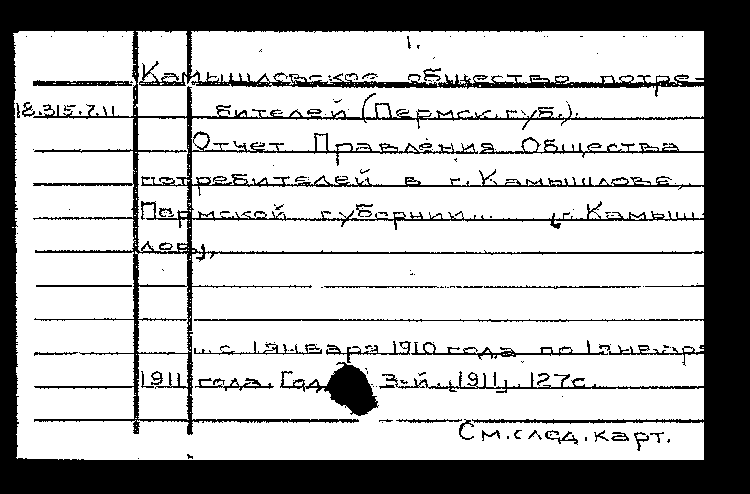 1.
Камышловское общество потре-
18.315.7.11 бителей (Пермск.губ.).
Отчет Правления Общества
потребителей в г. Камышлове,
Пермской губернии... [г. Камыш-
лов],
... с 1 января 1910 года по 1 января
1911 года. Год 3-й. [1911]. 127с.
См.след.карт.